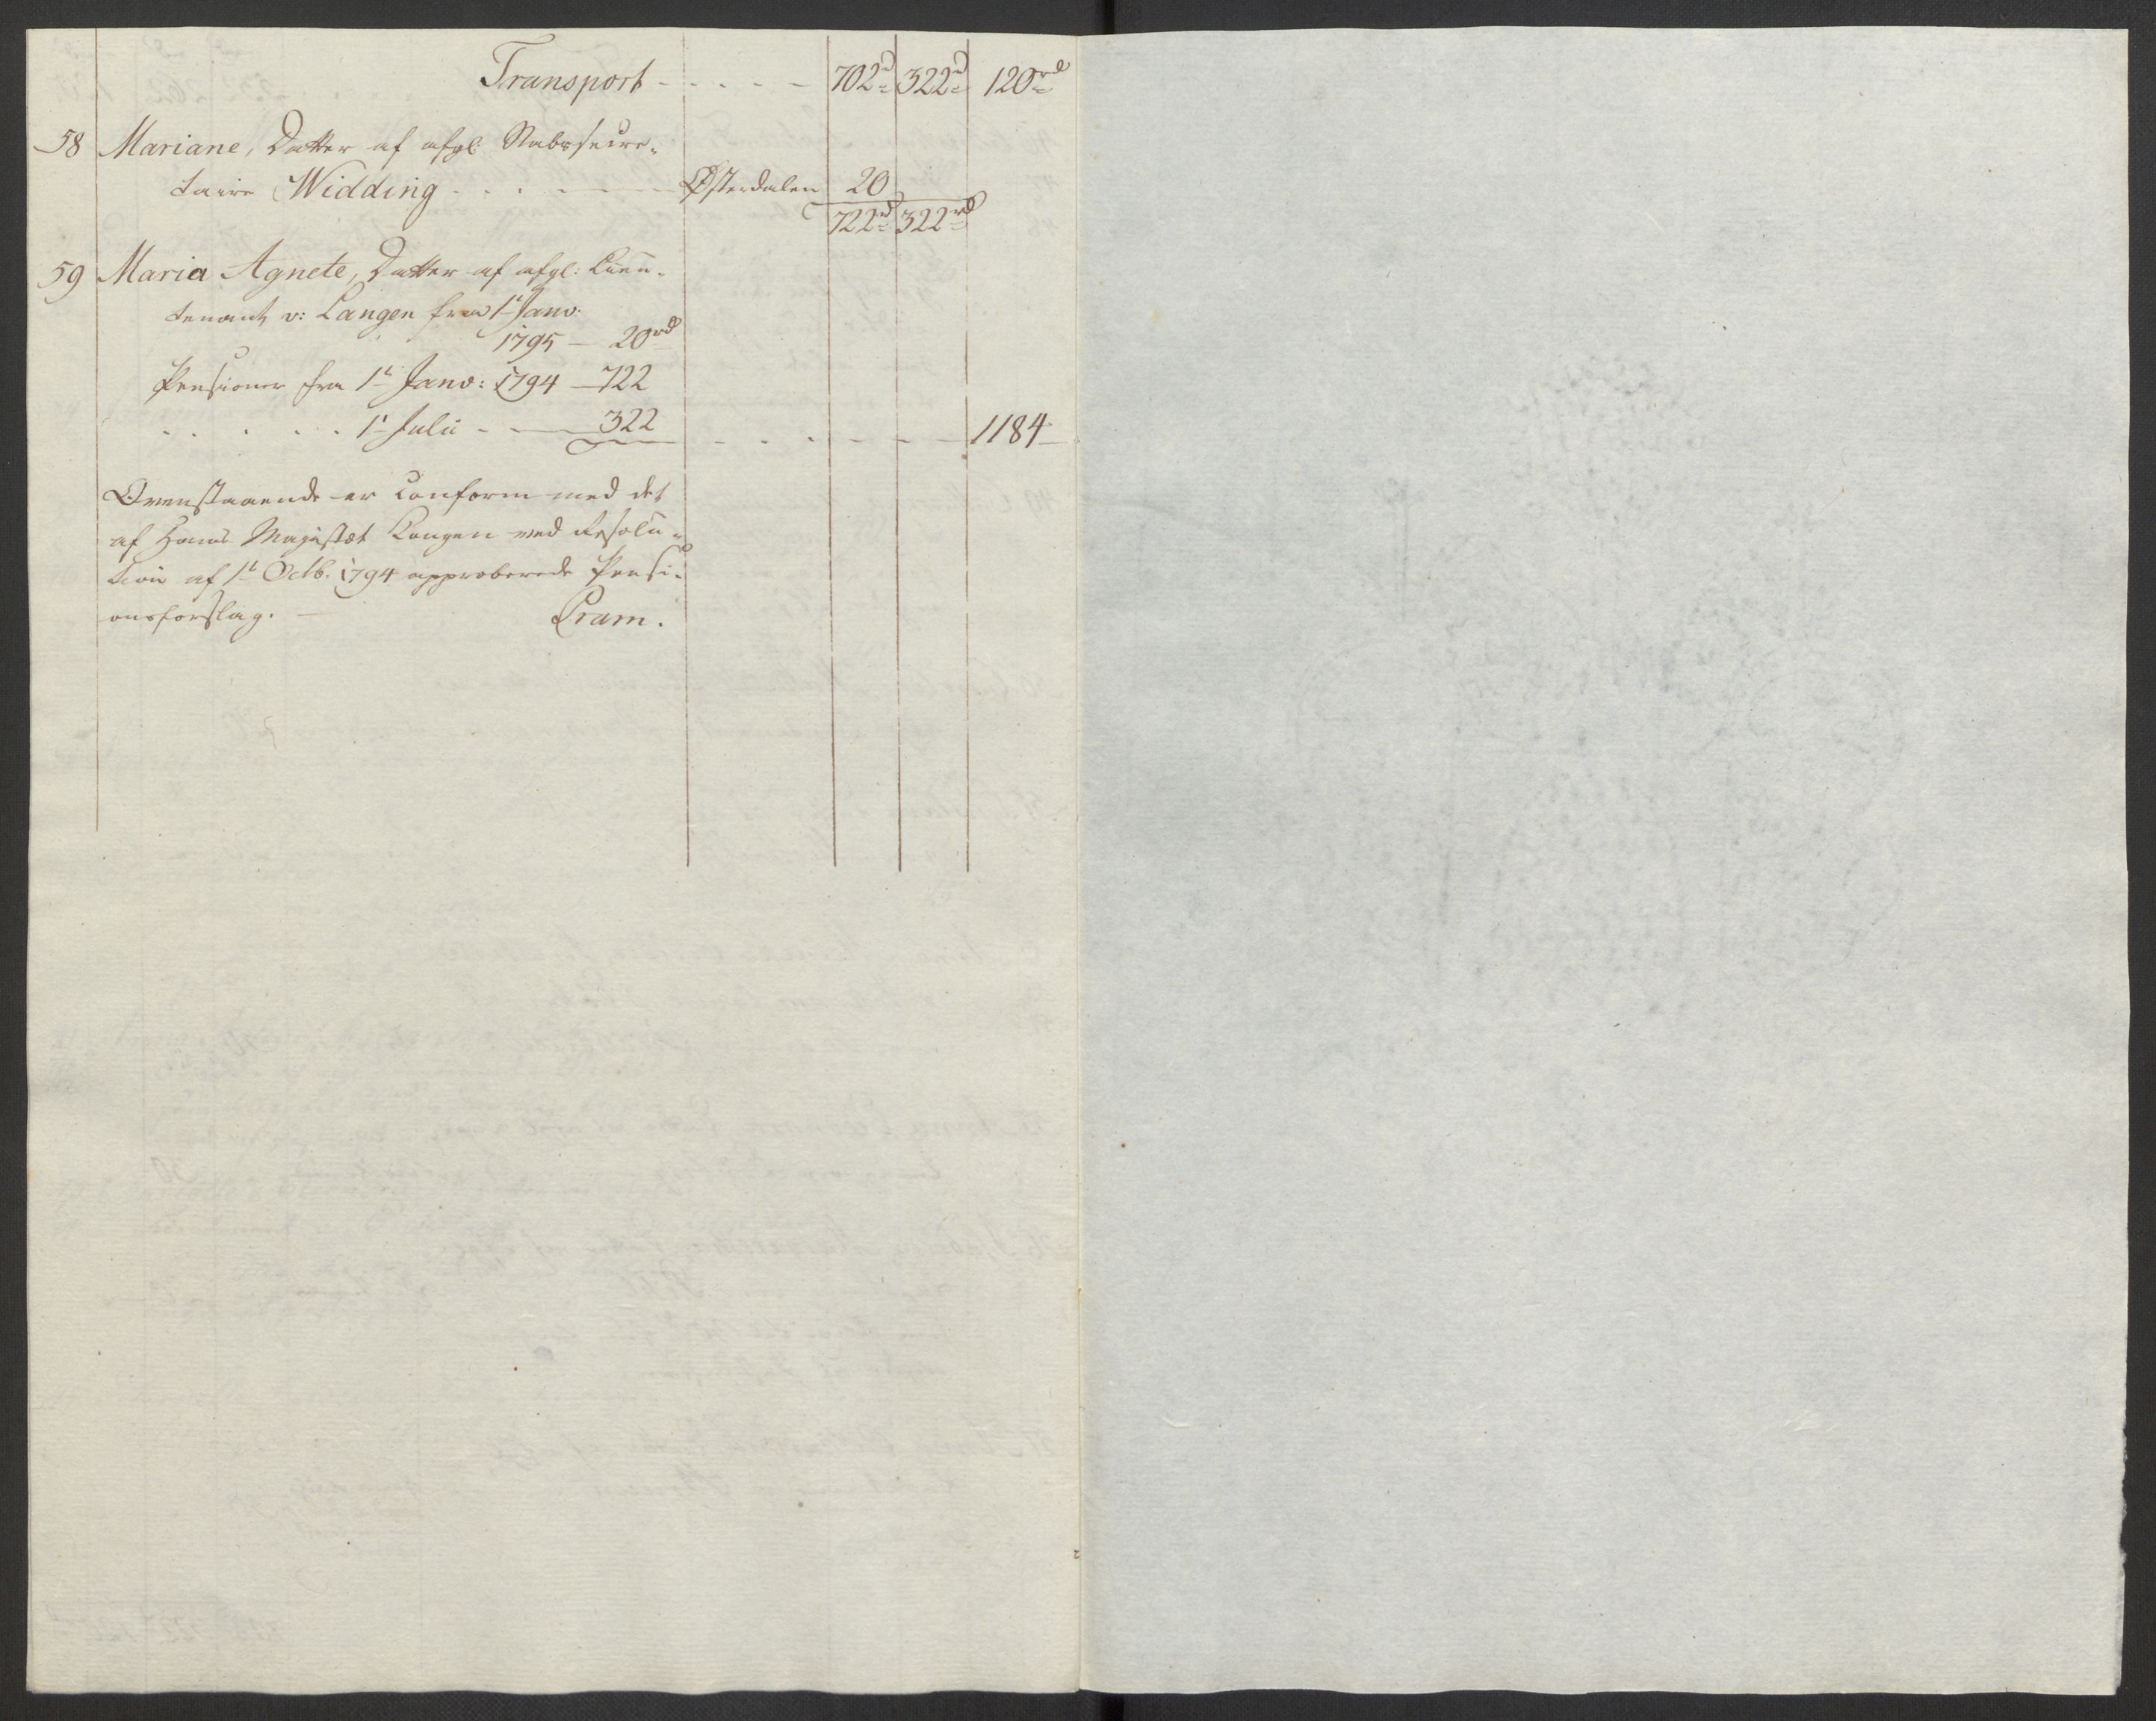 Transport - - - - - 702rd 322rd 120rd
58 Mariane, Datter af afgl. Stabssecre-
taire Widding - - - - - Østerdalen 20
722rd 322rd
59 Maria Agnete, Datter af afgl: Lieu-
tenant v: Langen fra 1t Janv:
1795 - 20rd
Pensioner fra 1t Janv: 1794 - 722
. . . . . 1t Julii - - 322 - - - - - - 1184
Ovenstaaende er conform med det
af Hans Majestæt Kongen ved Resolu-
tion af 1t Octb. 1794 approberede Pensi-
onsforslag. - Pram.